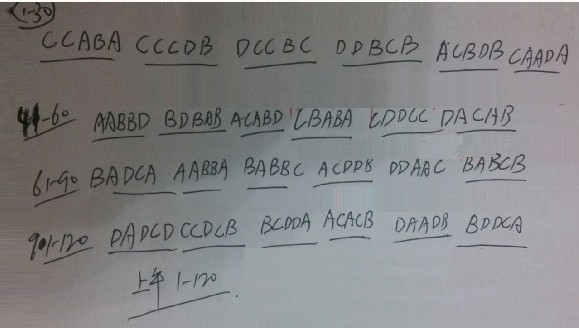 1-30
CCABA CCCDB DCCBC DDBCB ACBDB CAADA
41-60 AABBD BDBAB ACABD CBABA CDDCC DACAB
61-90 BADCA AABBA BABBC ACDDB DDAAC BABCB
901-120 DADCD CCDCB BCDDA ACACB DAADB BDDCA
上午 1-120